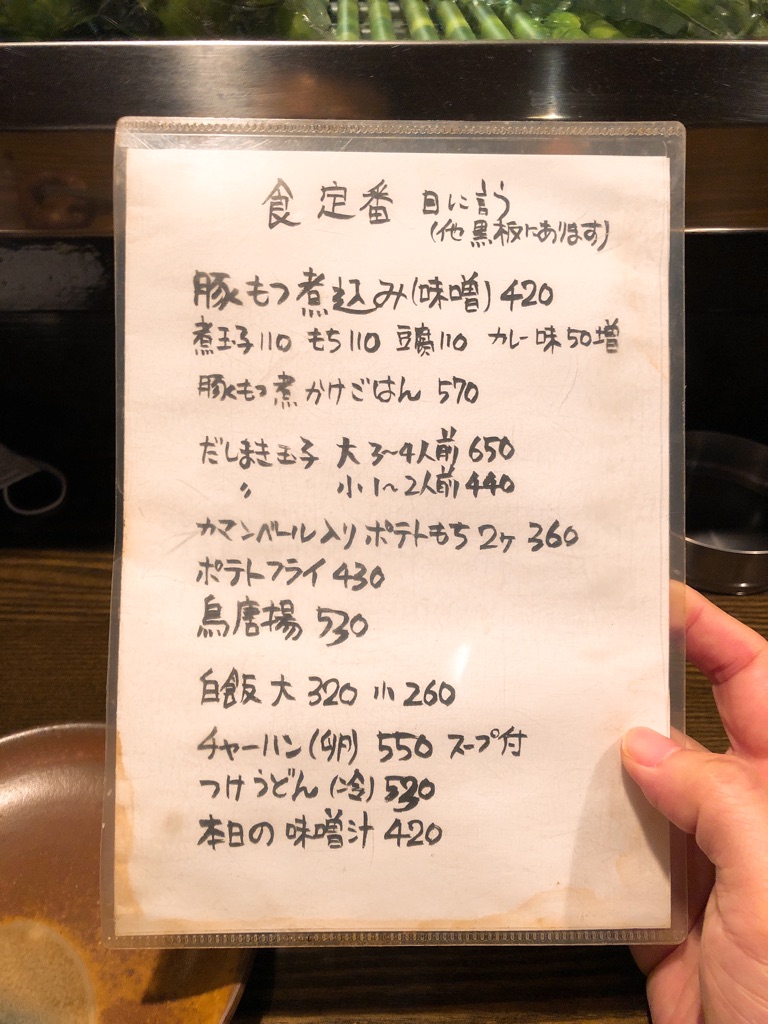 食 定番 目に言う
(他黒板にあります)
豚もつ煮込み(味噌) 420
煮玉子110 もち110 豆腐110 カレー味50増
豚もつ煮かけごはん 570
だしまき玉子 大 3〜4人前 650
〃 小 1〜2人前 440
カマンベール入りポテトもち 2ヶ 360
ポテトフライ 430
鳥唐揚 530
白飯 大 320 小 260
チャーハン(卵) 550 スープ付
つけうどん(冷)
本日の味噌汁 420